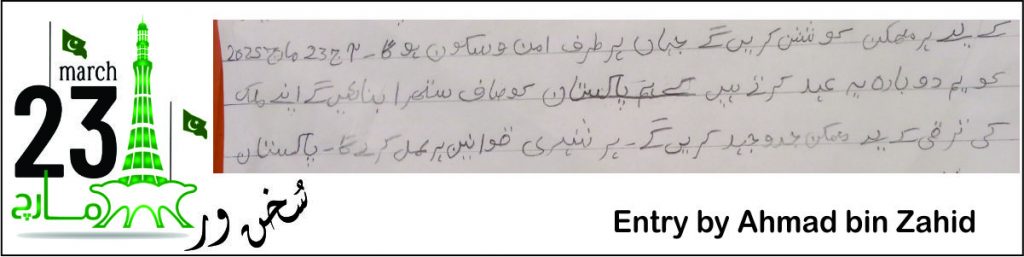 march
23
مارچ
سُخن ور
کے لیے ہر ممکن کوشش کریں گے جہاں ہر طرف امن و سکون ہو گا۔ آج 23 مارچ 2025
کو ہم دوبارہ یہ عہد کرتے ہیں کے ہم پاکستان کو صاف ستھرا بنائیں گے اپنے ملک
کی ترقی کے لیے ممکن جدوجہد کریں گے۔ ہر شہری قوانین پر عمل کرے گا۔ پاکستان
Entry by Ahmad bin Zahid